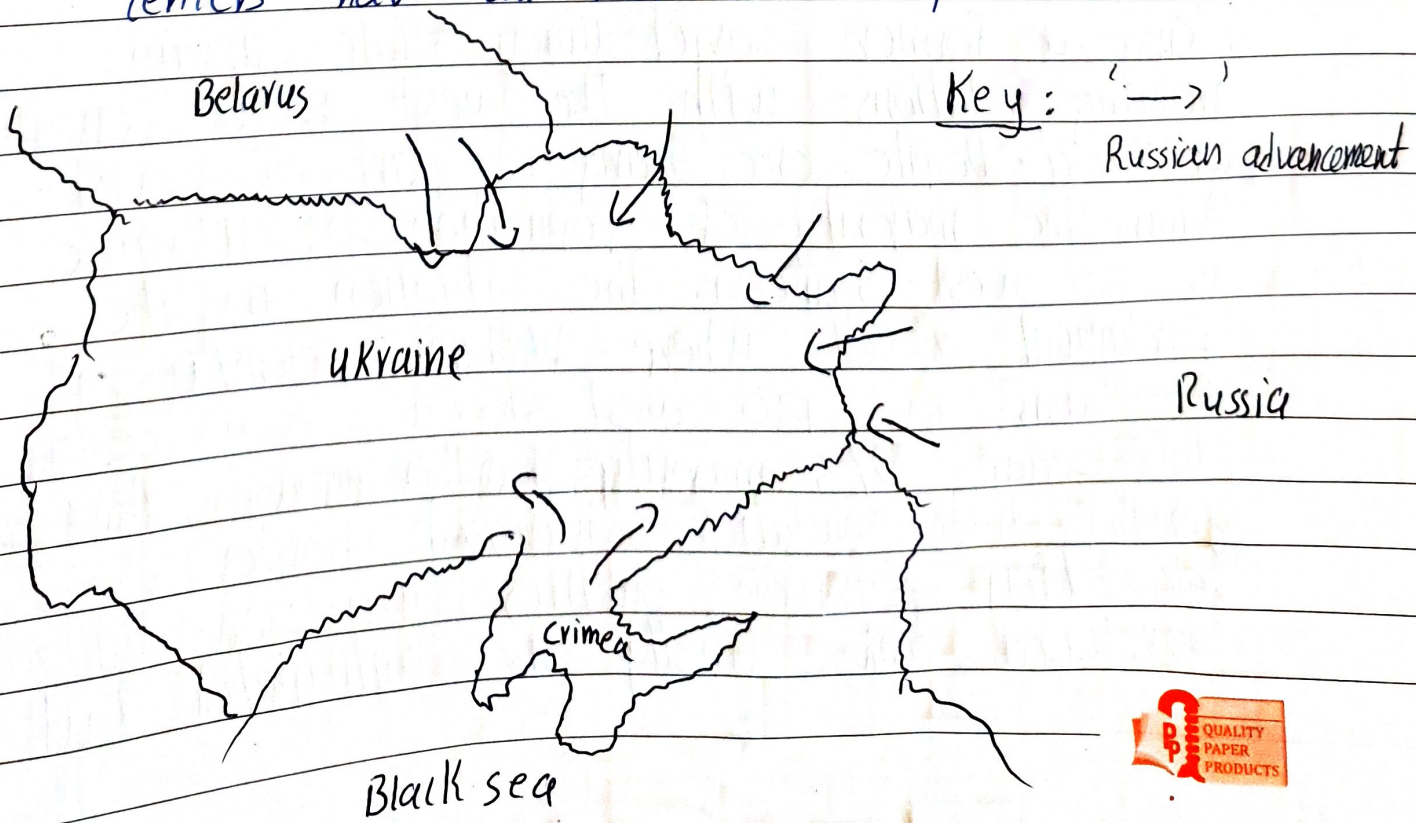 have
Belarus
Key : '—>'
Russian advancement
Ukraine
Russia
Crimea
Black sea
QUALITY
PAPER
PRODUCTS